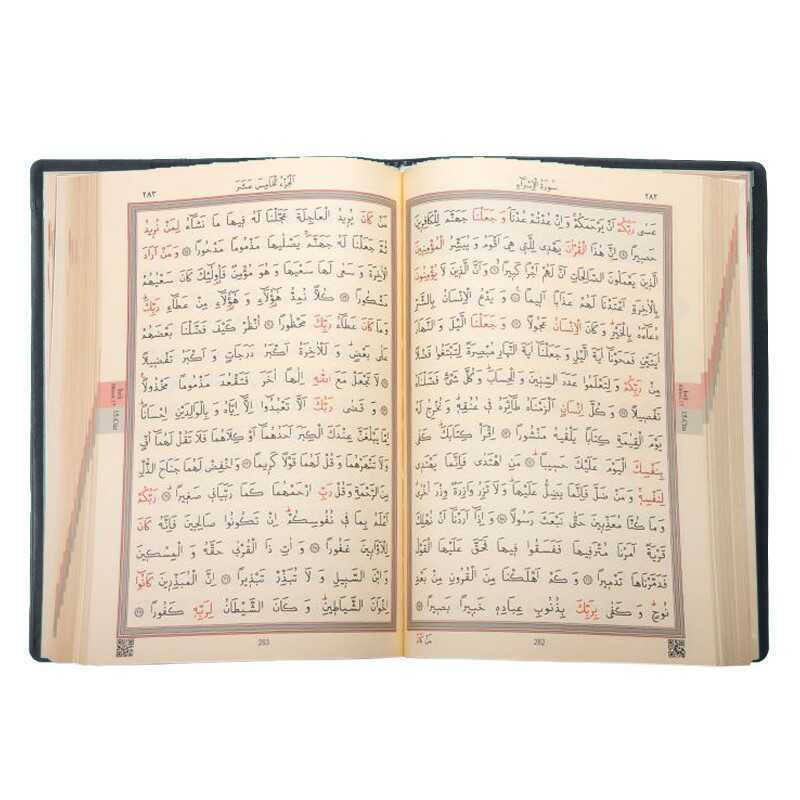 سُورَةُ الْإِسْرَاءِ ٢٨٢
عَسٰى رَبُّكُمْ اَنْ يَرْحَمَكُمْۚ وَاِنْ عُدْتُمْ عُدْنَاۢ وَجَعَلْنَا جَهَنَّمَ لِلْكَافِرِينَ
حَصِيرًا ﴿٨﴾ اِنَّ هٰذَا الْقُرْاٰنَ يَهْدِي لِلَّتِي هِيَ اَقْوَمُ وَيُبَشِّرُ الْمُؤْمِنِينَ
الَّذِينَ يَعْمَلُونَ الصَّالِحَاتِ اَنَّ لَهُمْ اَجْرًا كَبِيرًا ﴿٩﴾ وَاَنَّ الَّذِينَ لَا يُؤْمِنُونَ
بِالْاٰخِرَةِ اَعْتَدْنَا لَهُمْ عَذَابًا اَلِيمًا ﴿١٠﴾ وَيَدْعُ الْاِنْسَانُ بِالشَّرِّ
دُعَاءَهُ بِالْخَيْرِۜ وَكَانَ الْاِنْسَانُ عَجُولًا ﴿١١﴾ وَجَعَلْنَا الَّيْلَ وَالنَّهَارَ
اٰيَتَيْنِ فَمَحَوْنَا اٰيَةَ الَّيْلِ وَجَعَلْنَا اٰيَةَ النَّهَارِ مُبْصِرَةً لِتَبْتَغُوا فَضْلًا
مِنْ رَبِّكُمْ وَلِتَعْلَمُوا عَدَدَ السِّنِينَ وَالْحِسَابَۜ وَكُلَّ شَيْءٍ فَصَّلْنَاهُ
تَفْصِيلًا ﴿١٢﴾ وَكُلَّ اِنْسَانٍ اَلْزَمْنَاهُ طَائِرَهُ فِي عُنُقِهِۜ وَنُخْرِجُ لَهُ
يَوْمَ الْقِيٰمَةِ كِتَابًا يَلْقٰيهُ مَنْشُورًا ﴿١٣﴾ اِقْرَأْ كِتَابَكَۜ كَفٰى
بِنَفْسِكَ الْيَوْمَ عَلَيْكَ حَسِيبًا ﴿١٤﴾ مَنِ اهْتَدٰى فَاِنَّمَا يَهْتَدِي
لِنَفْسِهِۚ وَمَنْ ضَلَّ فَاِنَّمَا يَضِلُّ عَلَيْهَاۜ وَلَا تَزِرُ وَازِرَةٌ وِزْرَ اُخْرٰىۜ
وَمَا كُنَّا مُعَذِّبِينَ حَتّٰى نَبْعَثَ رَسُولًا ﴿١٥﴾ وَاِذَا اَرَدْنَا اَنْ نُهْلِكَ
قَرْيَةً اَمَرْنَا مُتْرَفِيهَا فَفَسَقُوا فِيهَا فَحَقَّ عَلَيْهَا الْقَوْلُ
فَدَمَّرْنَاهَا تَدْمِيرًا ﴿١٦﴾ وَكَمْ اَهْلَكْنَا مِنَ الْقُرُونِ مِنْ بَعْدِ
نُوحٍۜ وَكَفٰى بِرَبِّكَ بِذُنُوبِ عِبَادِهِ خَبِيرًا بَصِيرًا ﴿١٧﴾
مَنْ كَانَ
282
15.Cüz
٢٨٣ اَلْجُزْءُ الْخَامِسَ عَشَرَ
مَنْ كَانَ يُرِيدُ الْعَاجِلَةَ عَجَّلْنَا لَهُ فِيهَا مَا نَشَاءُ لِمَنْ نُرِيدُ
ثُمَّ جَعَلْنَا لَهُ جَهَنَّمَۚ يَصْلٰيهَا مَذْمُومًا مَدْحُورًا ﴿١٨﴾ وَمَنْ اَرَادَ
الْاٰخِرَةَ وَسَعٰى لَهَا سَعْيَهَا وَهُوَ مُؤْمِنٌ فَاُولٰئِكَ كَانَ سَعْيُهُمْ
مَشْكُورًا ﴿١٩﴾ كُلًّا نُمِدُّ هٰؤُلَاءِ وَهٰؤُلَاءِ مِنْ عَطَاءِ رَبِّكَۜ
وَمَا كَانَ عَطَاءُ رَبِّكَ مَحْظُورًا ﴿٢٠﴾ اُنْظُرْ كَيْفَ فَضَّلْنَا بَعْضَهُمْ
عَلٰى بَعْضٍۜ وَلَلْاٰخِرَةُ اَكْبَرُ دَرَجَاتٍ وَاَكْبَرُ تَفْضِيلًا
﴿٢١﴾ لَا تَجْعَلْ مَعَ اللّٰهِ اِلٰهًا اٰخَرَ فَتَقْعُدَ مَذْمُومًا مَخْذُولًا
﴿٢٢﴾ وَقَضٰى رَبُّكَ اَلَّا تَعْبُدُوا اِلَّا اِيَّاهُ وَبِالْوَالِدَيْنِ اِحْسَانًاۜ
اِمَّا يَبْلُغَنَّ عِنْدَكَ الْكِبَرَ اَحَدُهُمَا اَوْ كِلَاهُمَا فَلَا تَقُلْ لَهُمَا اُفٍّ
وَلَا تَنْهَرْهُمَا وَقُلْ لَهُمَا قَوْلًا كَرِيمًا ﴿٢٣﴾ وَاخْفِضْ لَهُمَا جَنَاحَ الذُّلِّ
مِنَ الرَّحْمَةِ وَقُلْ رَبِّ ارْحَمْهُمَا كَمَا رَبَّيَانِي صَغِيرًاۜ ﴿٢٤﴾ رَبُّكُمْ
اَعْلَمُ بِمَا فِي نُفُوسِكُمْۜ اِنْ تَكُونُوا صَالِحِينَ فَاِنَّهُ كَانَ
لِلْاَوَّابِينَ غَفُورًا ﴿٢٥﴾ وَاٰتِ ذَا الْقُرْبٰى حَقَّهُ وَالْمِسْكِينَ
وَابْنَ السَّبِيلِ وَلَا تُبَذِّرْ تَبْذِيرًا ﴿٢٦﴾ اِنَّ الْمُبَذِّرِينَ كَانُوا
اِخْوَانَ الشَّيَاطِينِۜ وَكَانَ الشَّيْطَانُ لِرَبِّهِ كَفُورًا ﴿٢٧﴾
283
15.Cüz